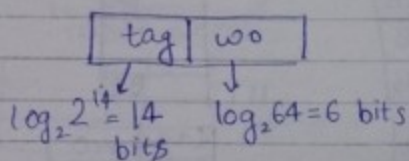 tag | wo
log₂2¹⁴ = 14 bits
log₂64 = 6 bits